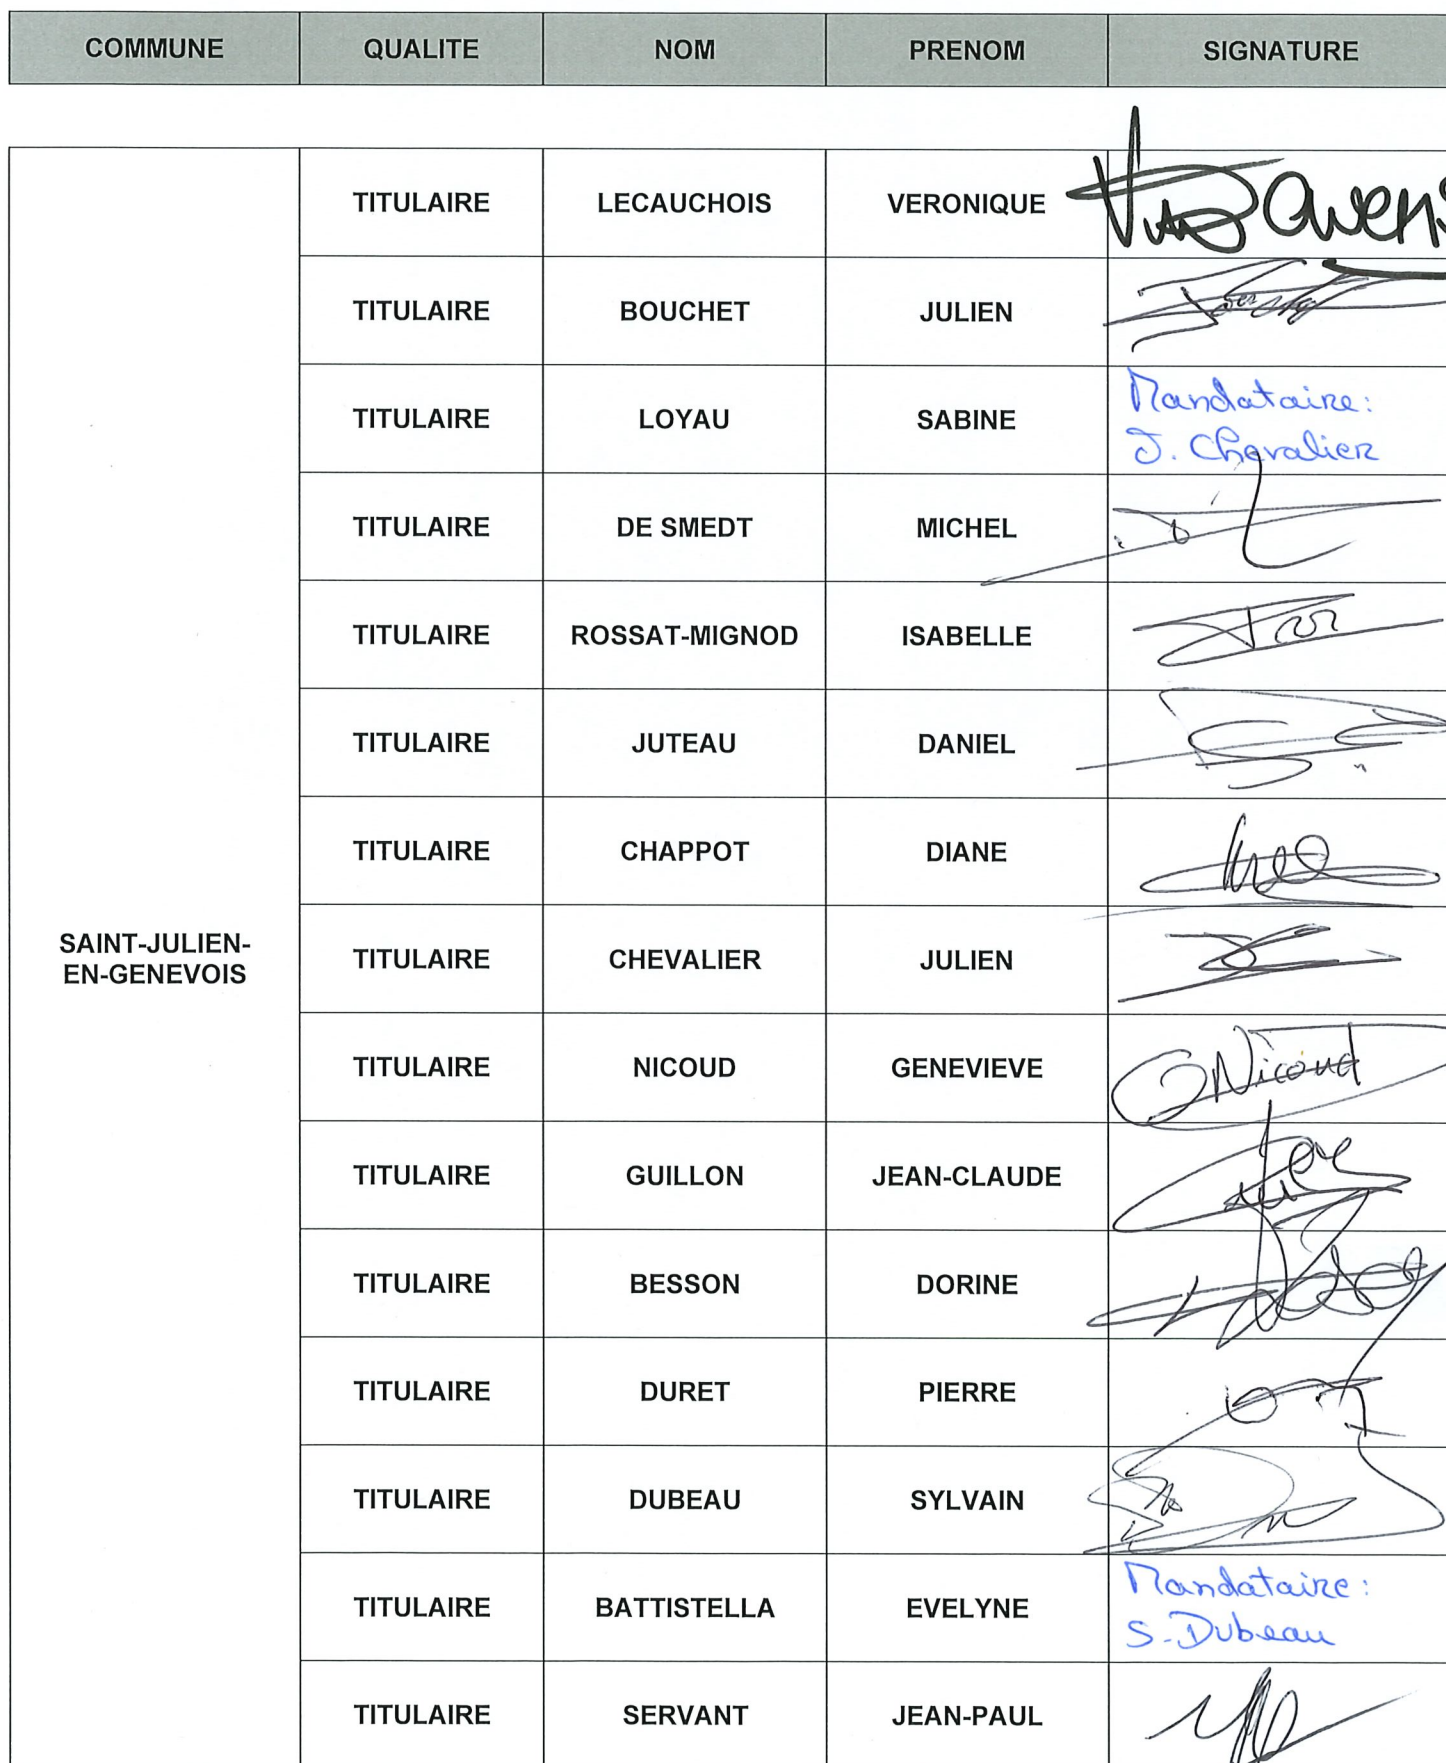 COMMUNE QUALITE NOM PRENOM SIGNATURE
TITULAIRE LECAUCHOIS VERONIQUE
TITULAIRE BOUCHET JULIEN
TITULAIRE LOYAU SABINE Mandataire:
J. Chevalier
TITULAIRE DE SMEDT MICHEL
TITULAIRE ROSSAT-MIGNOD ISABELLE
TITULAIRE JUTEAU DANIEL
TITULAIRE CHAPPOT DIANE
SAINT-JULIEN-
EN-GENEVOIS
TITULAIRE CHEVALIER JULIEN
TITULAIRE NICOUD GENEVIEVE Nicoud
TITULAIRE GUILLON JEAN-CLAUDE
TITULAIRE BESSON DORINE
TITULAIRE DURET PIERRE
TITULAIRE DUBEAU SYLVAIN
TITULAIRE BATTISTELLA EVELYNE Mandataire:
S. Dubeau
TITULAIRE SERVANT JEAN-PAUL